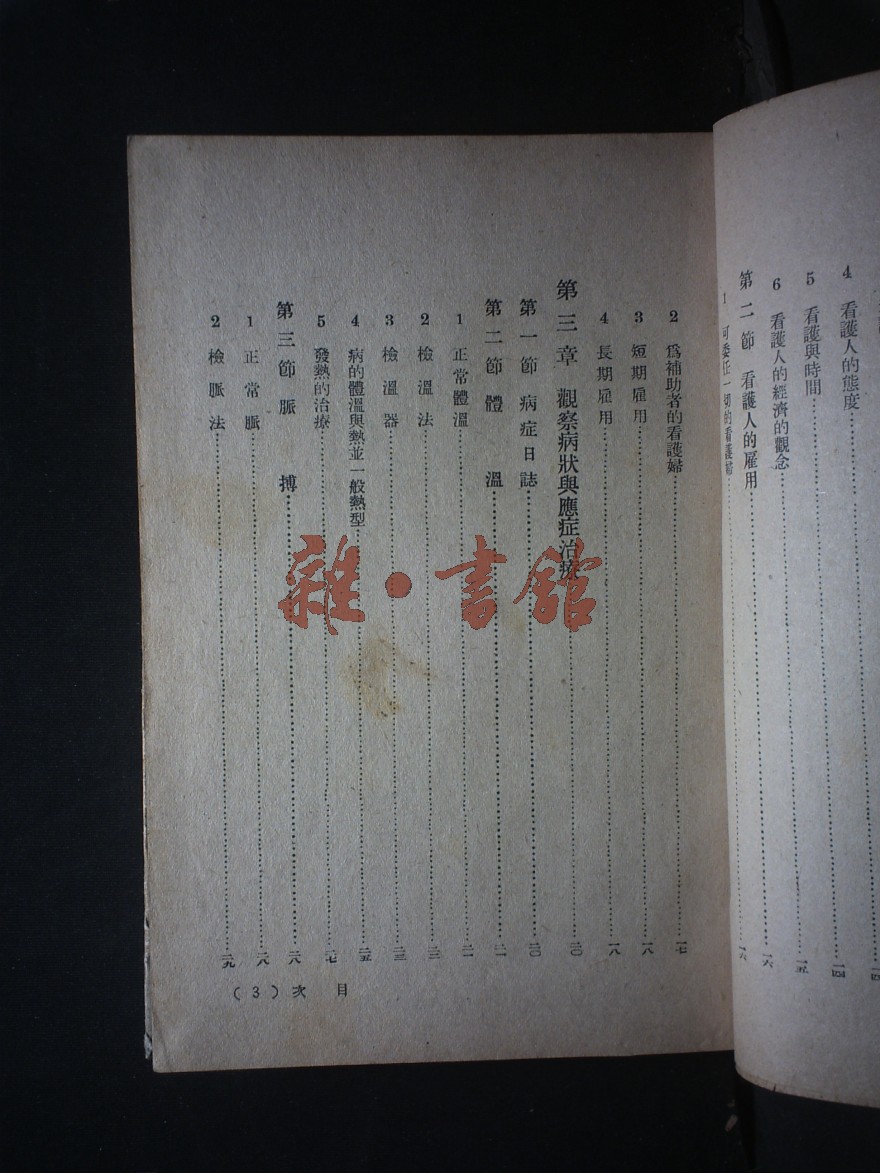 4 看護人的態度…一四
5 看護與時間…一五
6 看護人的經濟的觀念…一六
第二節 看護人的雇用…一六
1 可委任一切的看護婦
2 爲補助者的看護婦…一七
3 短期雇用…一八
4 長期雇用…一八
第三章 觀察病狀與應症治療…二〇
第一節 病症日誌…二〇
第二節 體溫…二一
1 正常體溫…二一
2 檢溫法…二三
3 檢溫器…二三
4 病的體溫與熱並一般熱型…二五
5 發熱的治療…二七
第三節 脈搏…二八
1 正常脈…二八
2 檢脈法…二九
目次(3)
雜·書館